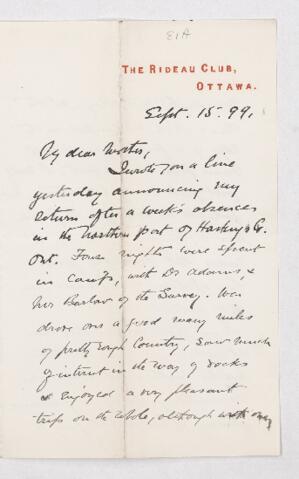 E1A
THE RIDEAU CLUB,
OTTAWA.
Sept. 15. 99.
My dear
I wrote you a line
yesterday announcing my
return after a week's absence
in the Northern part of Hastings Co.
Ont. Four nights were spent
in camp, with Dr Adams, &
Mr Barlow of the Survey. We
drove over a good many miles
of pretty rough country, saw much
of interest in the way of rocks
& enjoyed a very pleasant
trip on the whole, although